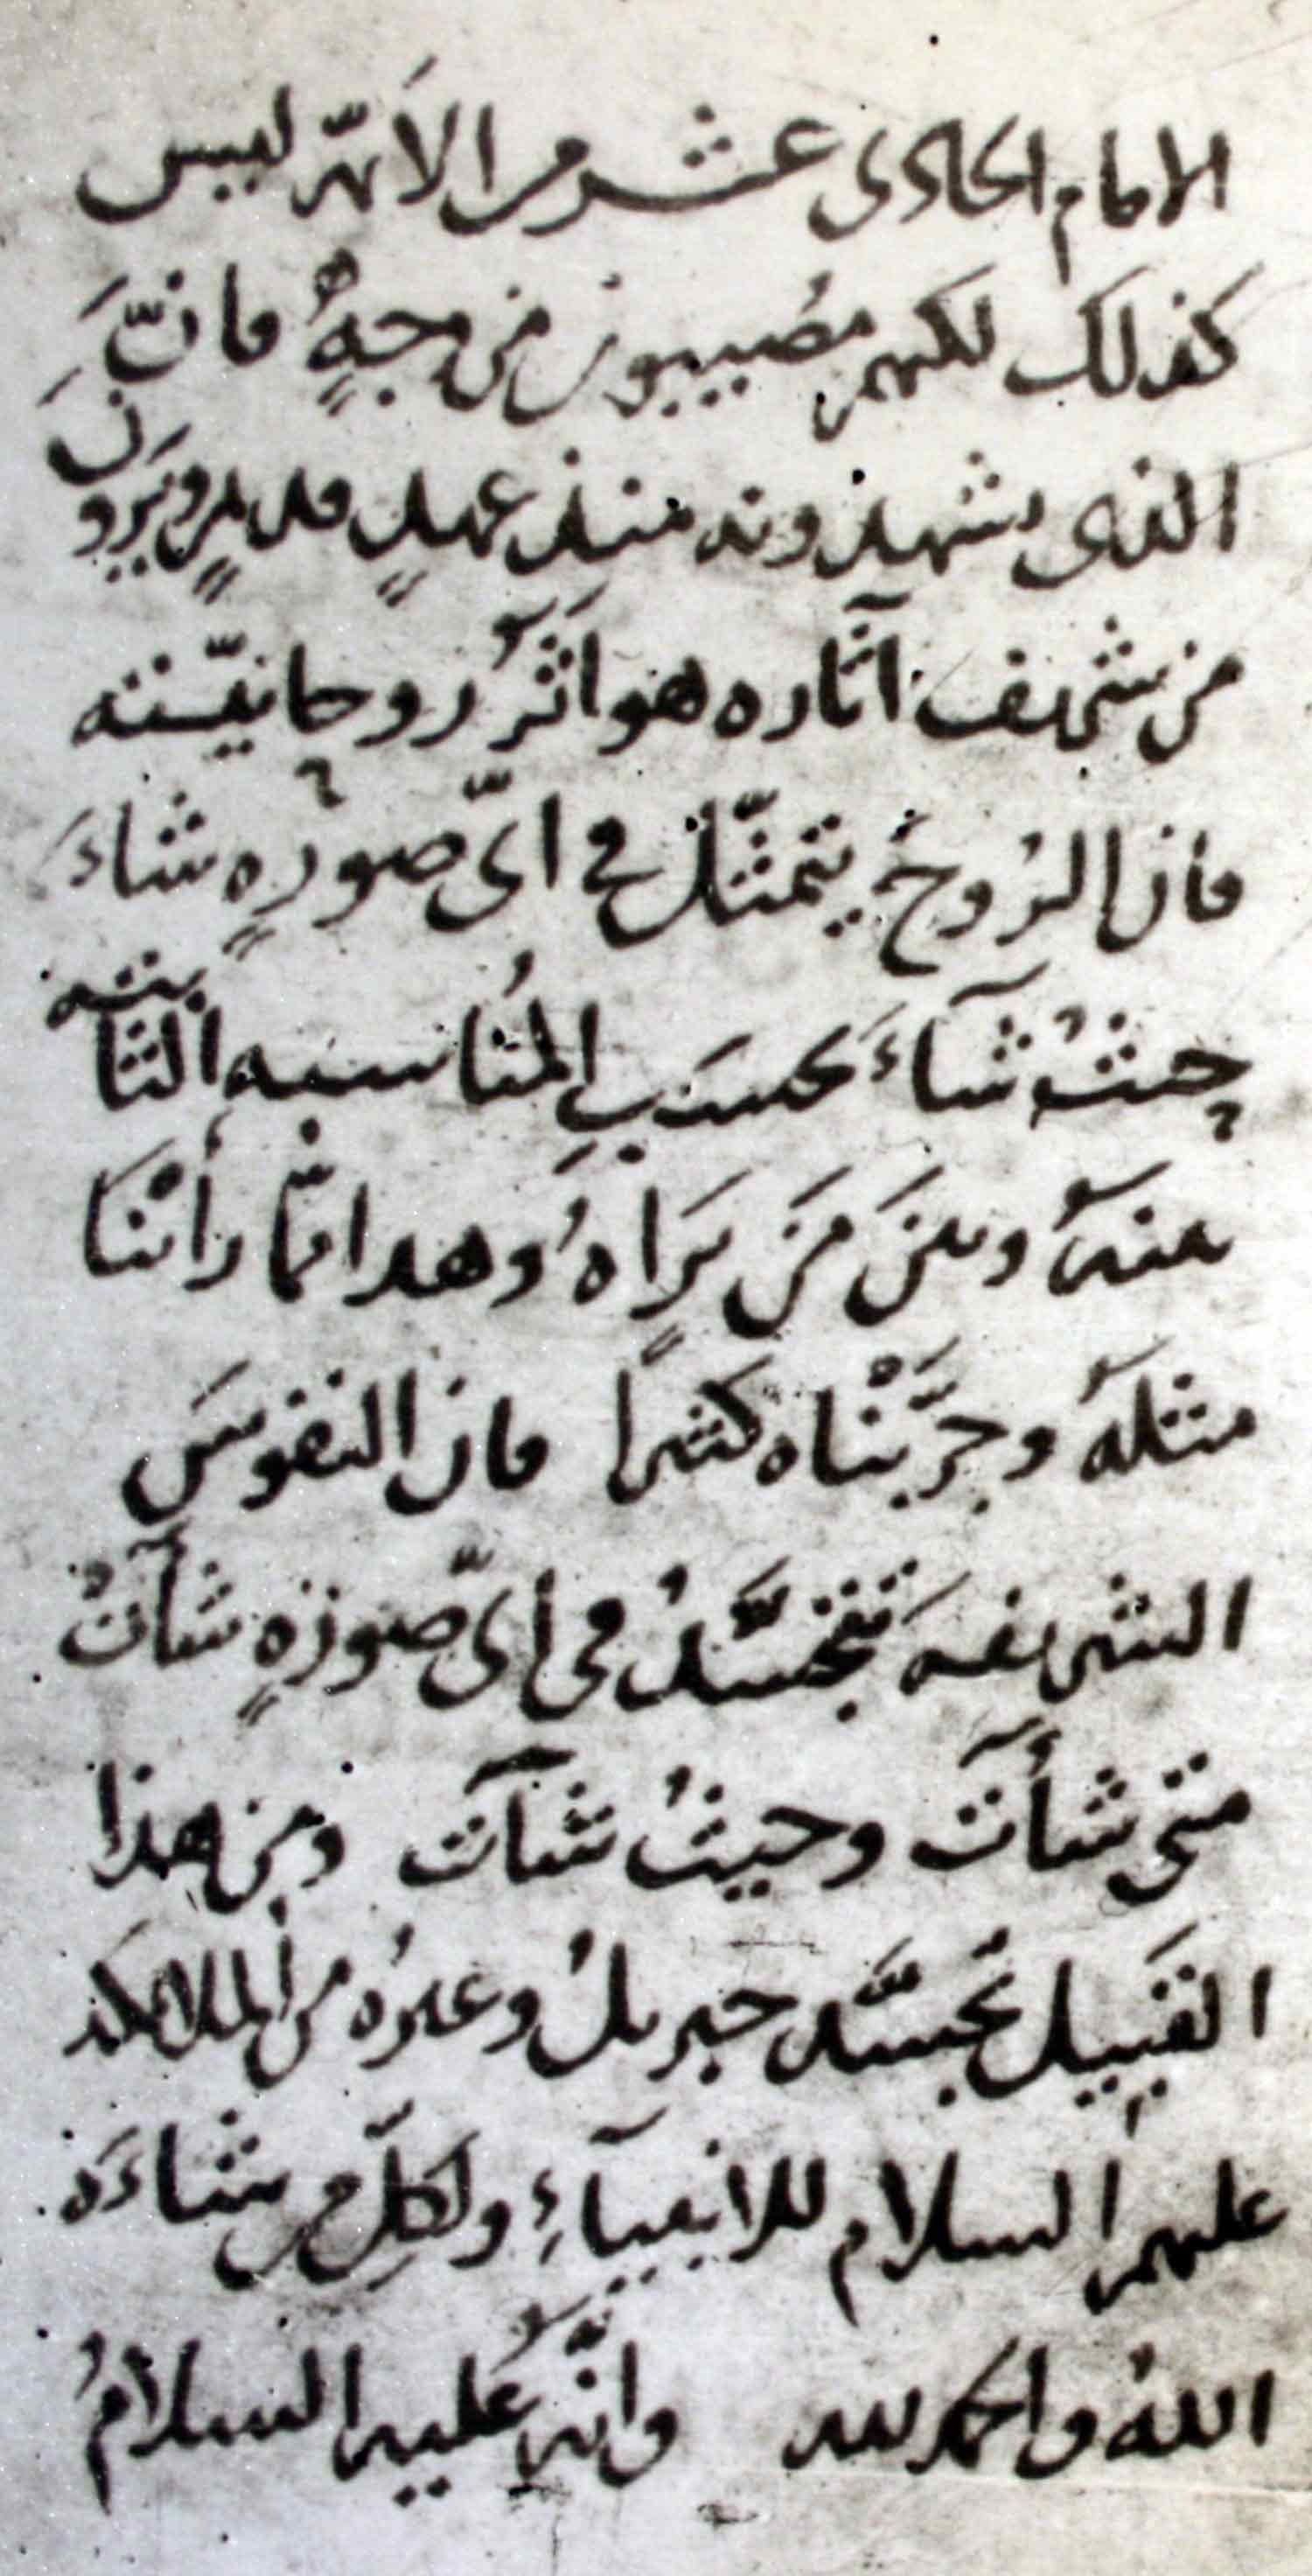 الامام الحادى عشر من الأئمّة ليس
كذلك لكنهم مصيبون من وجهٍ فانّ
الذى يشهدونه منذ عهدٍ قديمٍ ويَرَوْنَ
من شريف آثاره هو اثرُ روحانيّته
فان الروحَ يتمثّل فى اىّ صورةٍ شاءَ
حيثُ شآءَ بحسَبِ المُناسبه الثابته
بينهُ وبينَ مَن يَراهُ وهذا ممّا رأينا
مثلَهُ وجرّبْناه كثيراً فان النفوسَ
الشريفهَ تتجسّدُ فى اىّ صورةٍ شآتْ
متى شآتْ وحيثُ شآتْ ومن هذا
القبيل تجسّد جبريلُ وغيرُه من الملائكة
عليهم السلام للانبيآءِ ولكلّ من شاءَهُ
اللهُ والحمد لله وانّه عليه السلامُ